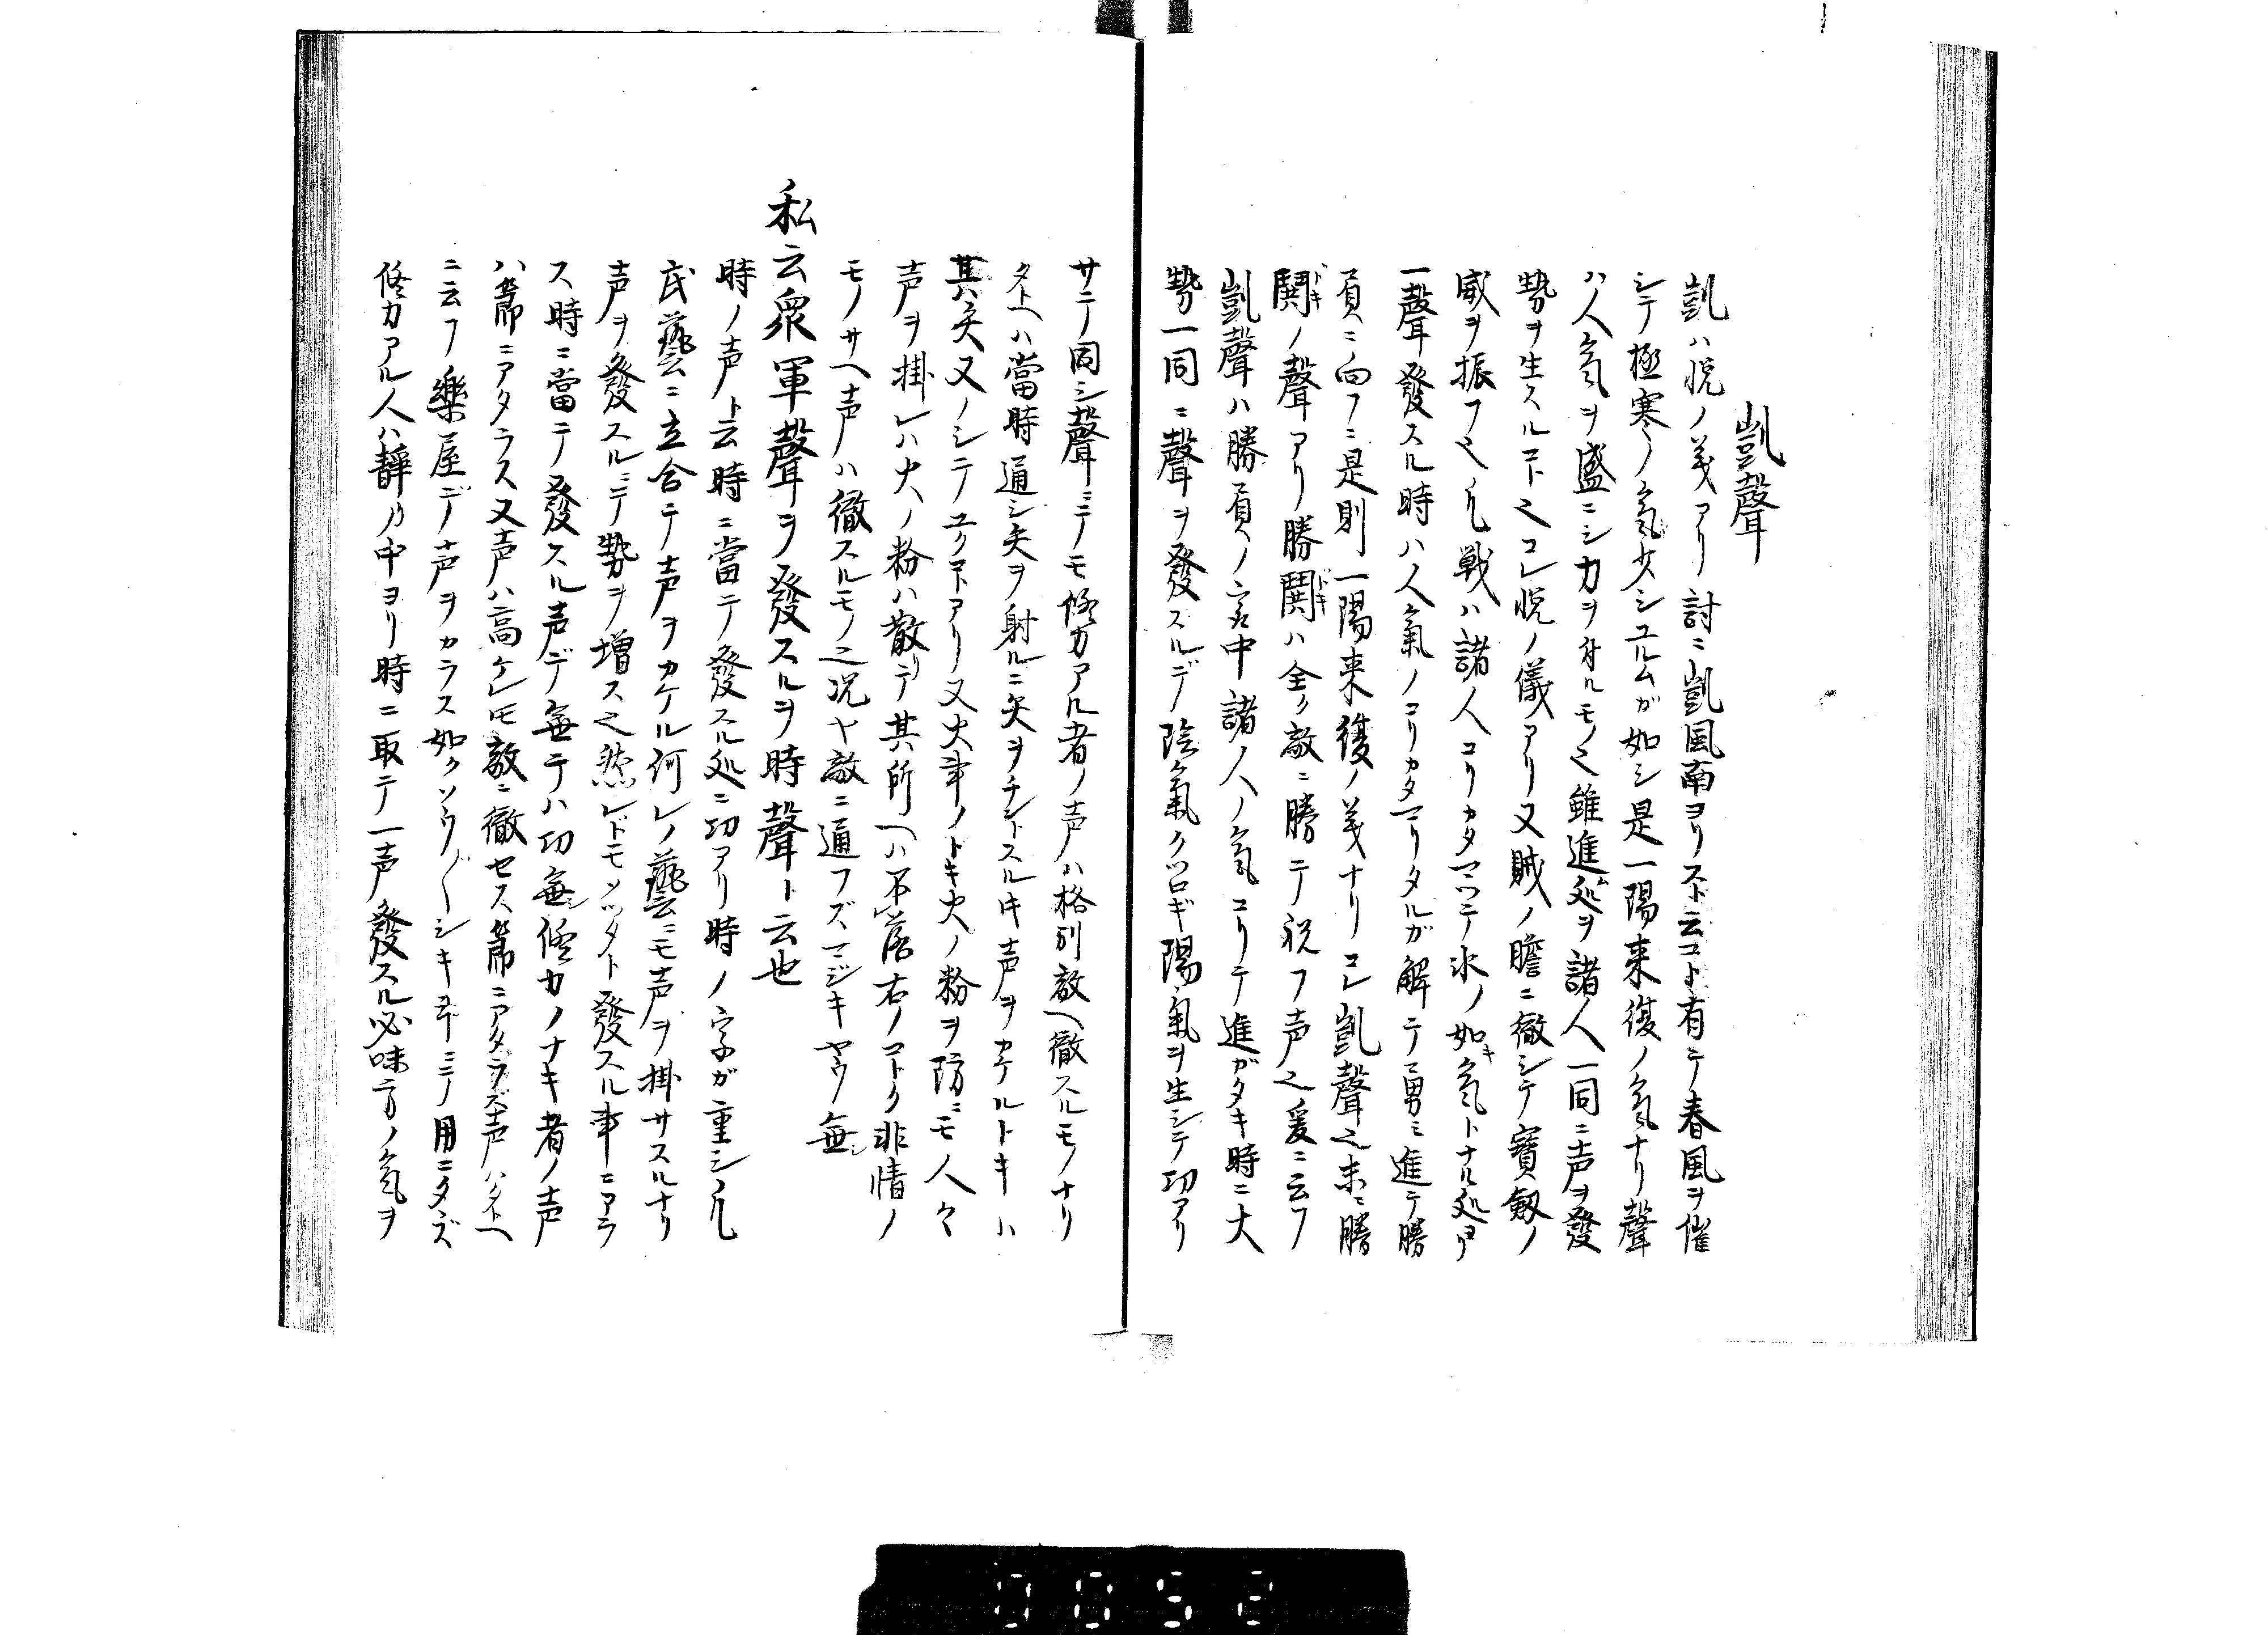 凱聲
凱ハ悦ノ義アリ討ニ凱風南ヨリスト云コト有テ春風ヲ催
シテ極寒ノ氣少シユルムガ如シ是一陽来復ノ氣ナリ聲
ハ人氣ヲ盛ニシ力ヲ付ルモノ也雖進処ヲ諸人一同ニ声ヲ發
勢ヲ生スルコト也コレ悦ノ儀アリ又賊ノ膽ニ徹シテ寶劔ノ
威ヲ振フ也凡戦ハ諸人コリカタマツテ氷ノ如キ氣トナル処ヨリ
一聲發スル時ハ人氣ノコリカタマリタルガ解テ勇ミ進テ勝
負ニ向フニ是則一陽来復ノ義ナリコレ凱聲也末ニ勝
鬨ノ聲アリ勝鬨ハ全ク敵ニ勝テ祝フ声也爰ニ云フ
凱聲ハ勝負ノ中諸人ノ氣コリテ進ガタキ時ニ大
勢一同ニ聲ヲ發スルデ陰氣クツロギ陽氣ヲ生シテ功アリ
サテ同シ聲ニテモ修力アル者ノ声ハ格別敵ヘ徹スルモノナリ
タトヘハ當時通シ矢ヲ射ルニ矢ヲチントスル時声ヲカケルトキハ
其矢又ノシテユクコトアリ又火事ノトキ火ノ粉ヲ防ニモ人々
声ヲ掛レハ火ノ粉ハ散リテ其所ヘハ不落右ノコトク非情ノ
モノサヘ声ハ徹スルモノ也况ヤ敵ニ通フズマジキヤウ無シ
私云衆軍聲ヲ發スルヲ時聲ト云也
時ノ声ト云時ニ當テ發スル処ニ功アリ時ノ字ガ重シ凡
武藝ニ立合テ声ヲカケル何レノ藝ニモ声ヲ掛サスルナリ
声ヲ發スルニテ勢ヲ増ス也然レドモメツタト發スル事ニアラ
ス時ニ當テ發スル声デ無テハ功無シ修力ノナキ者ノ声
ハ節ニアタラス又声ハ高ケレ𪜈敵ニ徹セス節ニアタラズ声ハタトヘ
ニ云フ樂屋デ声ヲカラス如クソウ〲シキ斗ニテ用ニタヽズ
修力アル人ハ静ノ中ヨリ時ニ取テ一声發スル必味方ノ氣ヲ